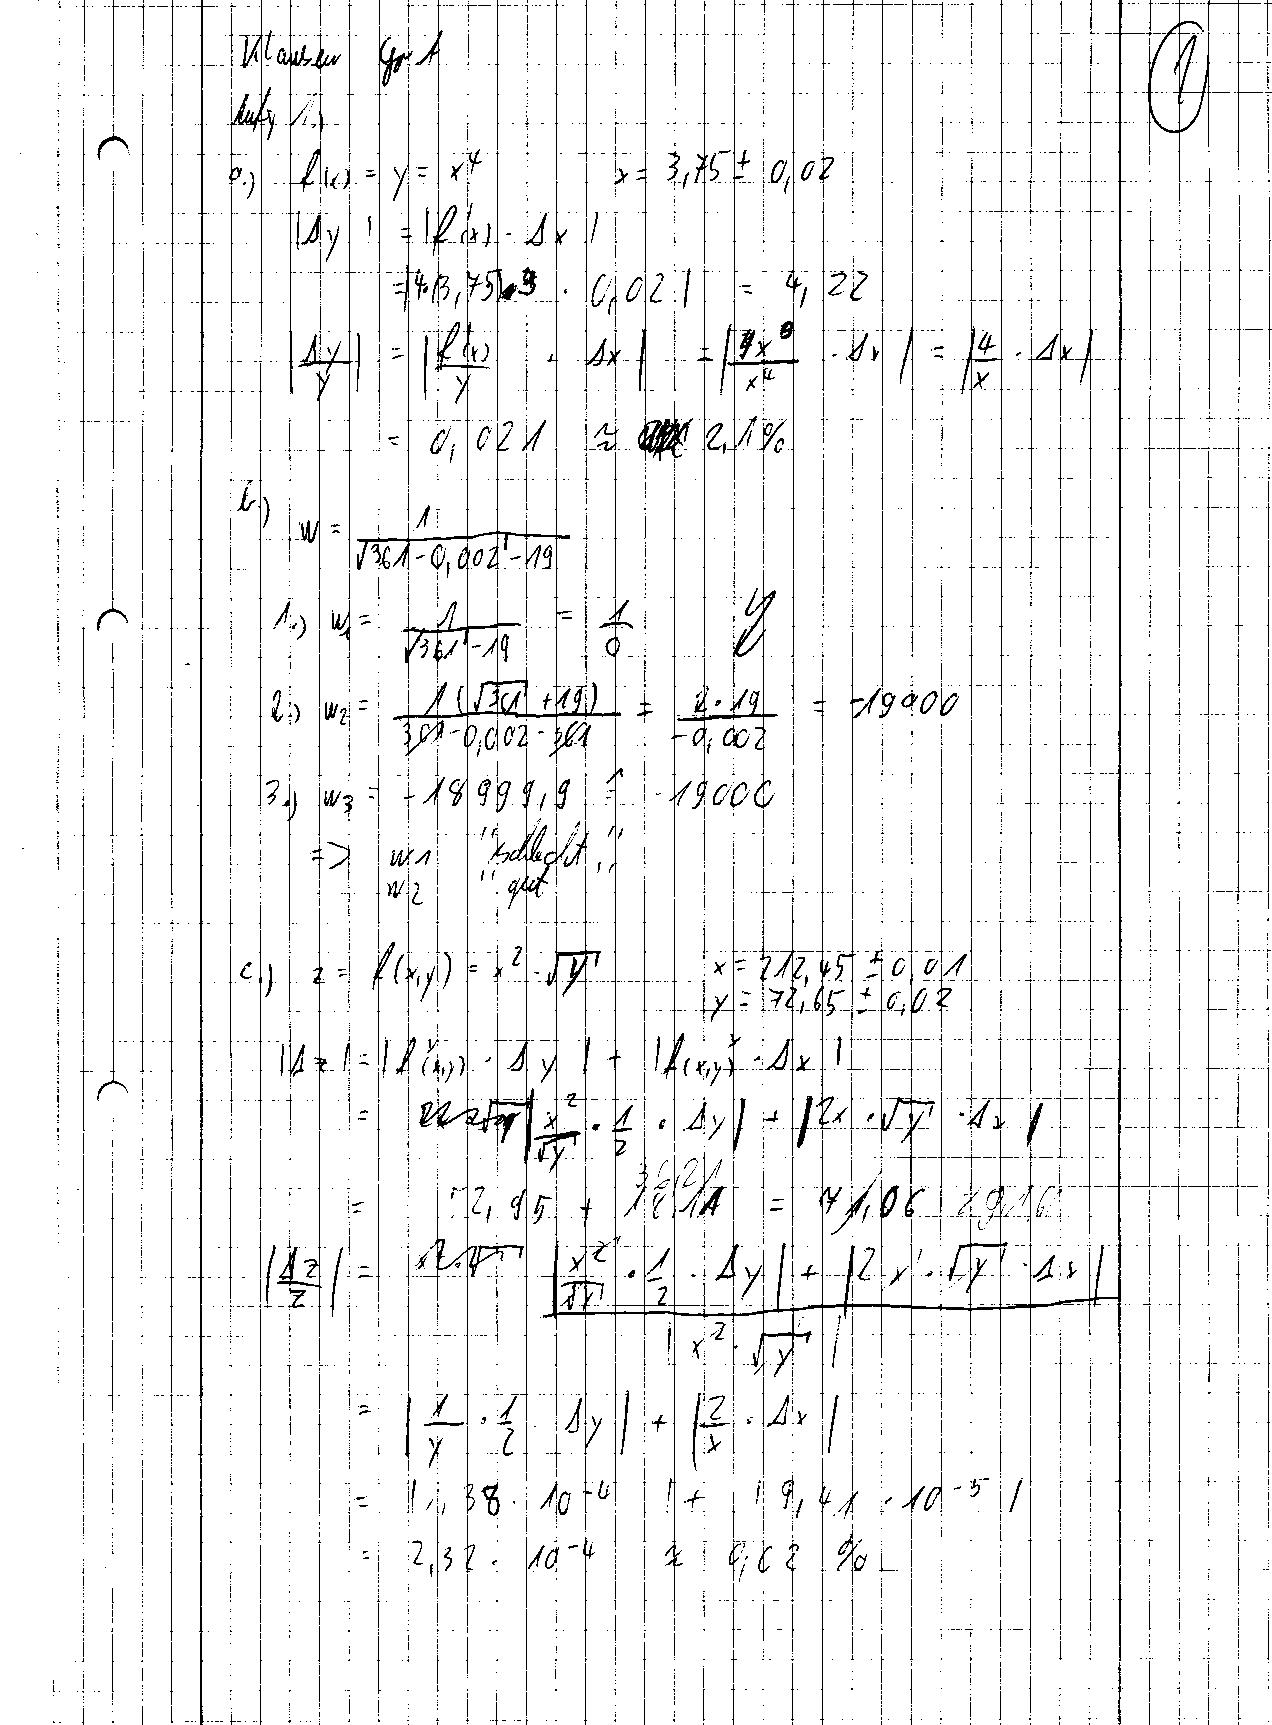 Klausur Gr. 1
1
Aufg 1.)
a.) f(x) = y = x⁴ x = 3,75 ± 0,02
|Δy| = |f'(x) · Δx|
= |4·(3,75)³ · 0,02| = 4,22
|Δy/y| = |f'(x)/y · Δx| = |4x³/x⁴ · Δx| = |4/x · Δx|
= 0,021 ≈ 2,1%
b.) w = 1/(√(361-0,002) - 19)
1.) w₁ = 1/(√361 - 19) = 1/0
2.) w₂ = 1(√361 + 19)/(361-0,002-361) = 2·19/(-0,002) = -19000
3.) w₃ = -18999,9 ≙ -19000
=> w1 "schlecht"
w2 "gut"
c.) z = f(x,y) = x² · √y x = 212,45 ± 0,01
y = 72,65 ± 0,02
|Δz| = |f^y(x,y) · Δy| + |f(x,y)^x · Δx|
= |x²/√y · 1/2 · Δy| + |2x · √y · Δx|
= 52,95 + 36,21 = 89,16
|Δz/z| = (|x²/√y · 1/2 · Δy| + |2x · √y · Δx|)/|x² · √y|
= |1/y · 1/2 Δy| + |2/x · Δx|
= |1,38 · 10⁻⁴| + |9,41 · 10⁻⁵|
= 2,32 · 10⁻⁴ ≈ 0,02 %